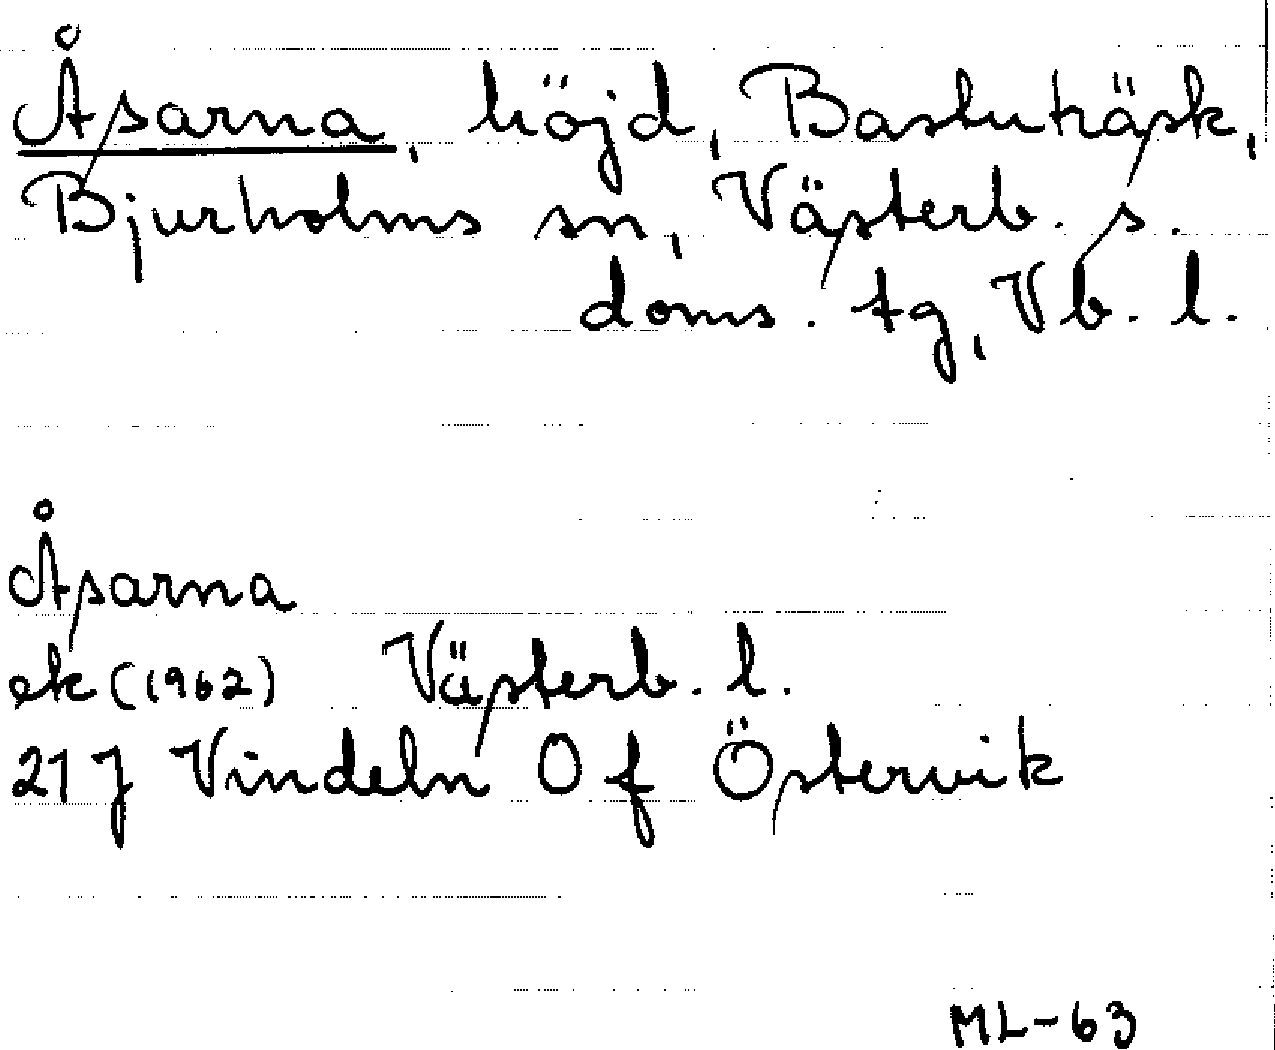 Åsarna, höjd, Bastuträsk,
Bjurholms sn, Västerb. s.
doms. tg, Vb. l.
Åsarna
ek (1962) Västerb. l.
21 J Vindeln 0 f Östervik
ML-63